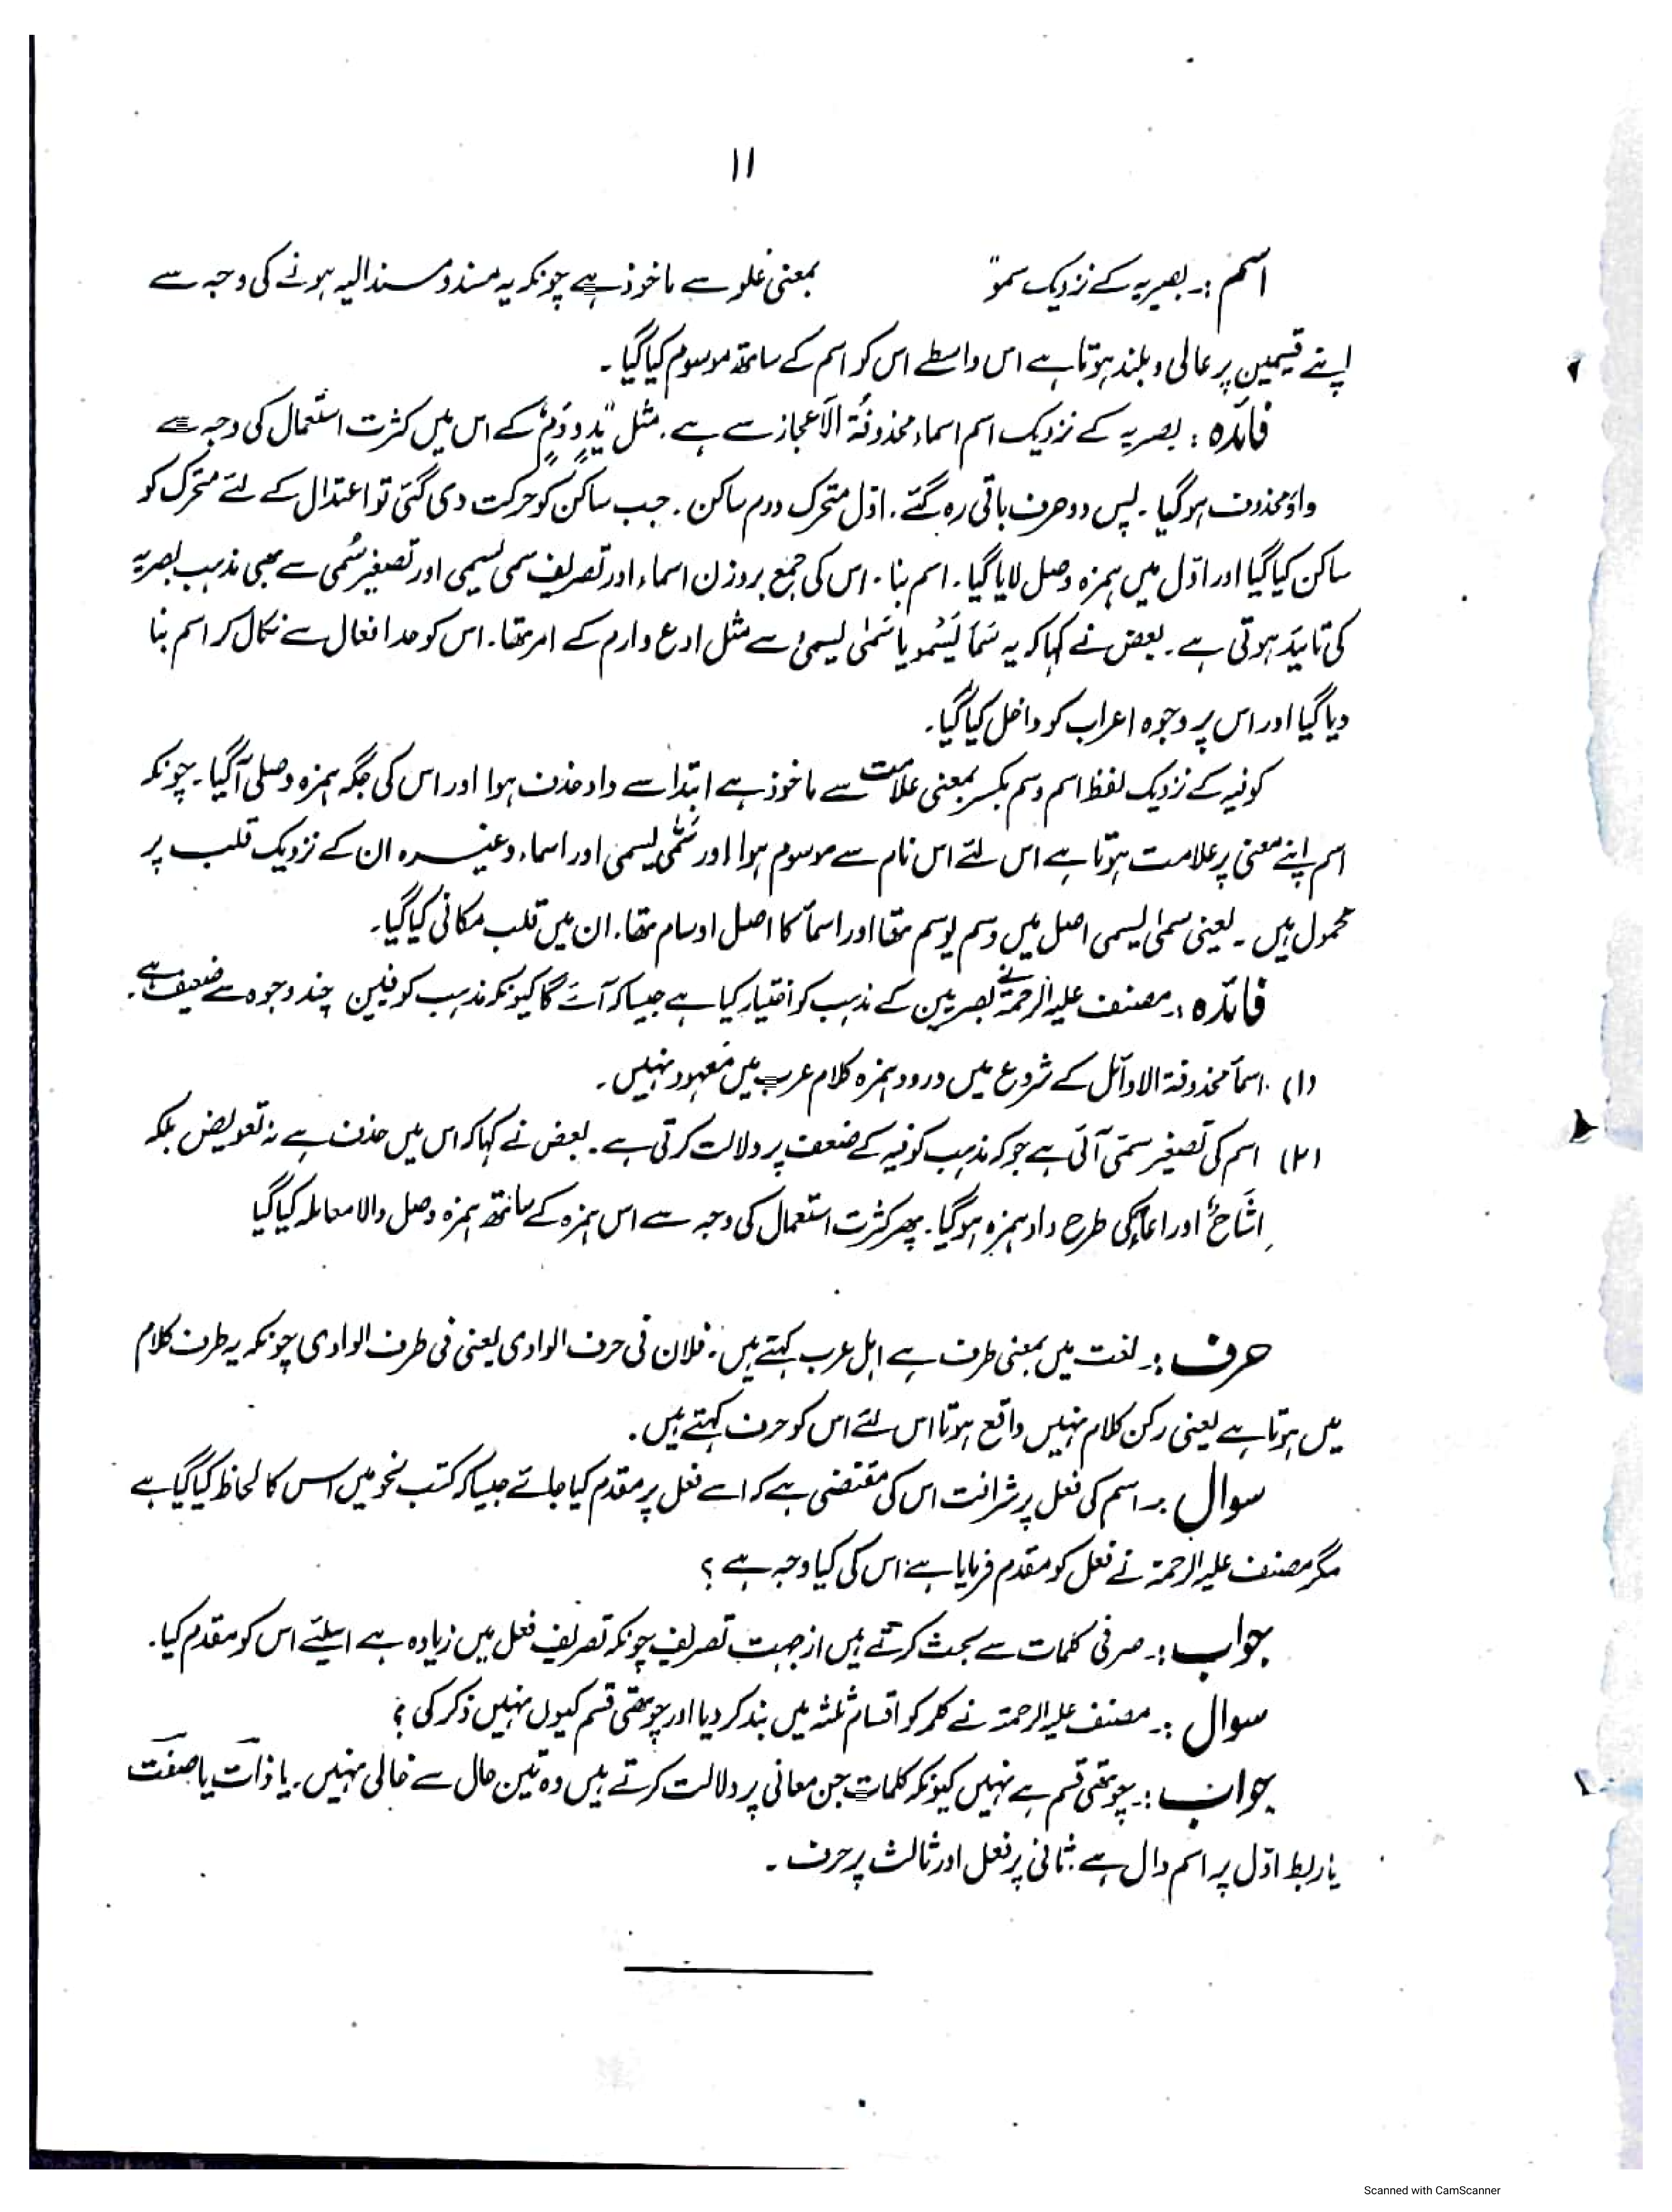 ۱۱
اسم :۔ بصریہ کے نزدیک سموٌ بمعنی علو سے ماخوذ ہے چونکہ یہ مسند و مسند الیہ ہونے کی وجہ سے
اپنے قیمین پر عالی و بلند ہوتا ہے اس واسطے اس کو اسم کے ساتھ موسوم کیا گیا ۔
فائدہ : بصریہ کے نزدیک اسم اسماء محذوفۃ الاعجاز سے ہے ۔ مثل یدٍ و دمٍ کے اس میں کثرت استعمال کی وجہ سے
واؤ محذوف ہو گیا ۔ پس دو حرف باقی رہ گئے ۔ اوّل متحرک دوم ساکن ۔ جب ساکن کو حرکت دی گئی تو اعتدال کے لئے متحرک کو
ساکن کیا گیا اور اوّل میں ہمزہ وصل لایا گیا ۔ اسم بنا ۔ اس کی جمع بروزن اسماء اور تصریف سمی لیسمی اور تصغیر سُمی سے بھی مذہب بصریہ
کی تائید ہوتی ہے ۔ بعض نے کہا کہ یہ سَمَا یَسْمو یا سَمٰی لیسمیٰ سے مثل ادع وارم کے امر تھا ۔ اس کو حد افعال سے نکال کر اسم بنا
دیا گیا اور اس پر وجوہ اعراب کو داخل کیا گیا ۔
کوفیہ کے نزدیک لفظ اسم وسم بکسر بمعنی علامت سے ماخوذ ہے ابتدا سے واو حذف ہوا اور اس کی جگہ ہمزہ وصلی آ گیا ۔ چونکہ
اسم اپنے معنی پر علامت ہوتا ہے اس لئے اس نام سے موسوم ہوا اور سَمّی لیسمی اور اسماء وغیرہ ان کے نزدیک قلب پر
محمول ہیں ۔ یعنی سمیٰ لیسمی اصل میں وسم یوسم تھا اور اسمآ کا اصل اوسام تھا ۔ ان میں قلب مکانی کیا گیا ۔
فائدہ :۔ مصنف علیہ الرحمۃ نے بصریین کے مذہب کو اختیار کیا ہے جیسا کہ آئے گا کیونکہ مذہب کوفیین چند وجوہ سے ضعیف ہے ۔
(۱) اسمآ محذوفۃ الاوائل کے شروع میں ورود ہمزہ کلام عرب میں معہود نہیں ۔
(۲) اسم کی تصغیر سمّی آئی ہے جو کہ مذہب کوفیہ کے ضعف پر دلالت کرتی ہے ۔ بعض نے کہا کہ اس میں حذف ہے نہ تعویض بلکہ
اشاحٌ اور اعاءٌ کی طرح واو ہمزہ ہو گیا ۔ پھر کثرت استعمال کی وجہ سے اس ہمزہ کے ساتھ ہمزہ وصل والا معاملہ کیا گیا
حرف :۔ لغت میں بمعنی طرف ہے اہل عرب کہتے ہیں ۔ فلان فی حرف الوادی یعنی فی طرف الوادی چونکہ یہ طرف کلام
میں ہوتا ہے یعنی رکن کلام نہیں واقع ہوتا اس لئے اس کو حرف کہتے ہیں ۔
سوال :۔ اسم کی فعل پر شرافت اس کی مقتضی ہے کہ اسے فعل پر مقدم کیا جائے جیسا کہ کتب نحو میں اس کا لحاظ کیا گیا ہے
مگر مصنف علیہ الرحمۃ نے فعل کو مقدم فرمایا ہے اس کی کیا وجہ ہے ؟
جواب :۔ صرفی کلمات سے بحث کرتے ہیں از جہت تصریف چونکہ تصریف فعل میں زیادہ ہے اسلئے اس کو مقدم کیا ۔
سوال :۔ مصنف علیہ الرحمۃ نے کلمہ کو اقسام ثلٰثہ میں بند کر دیا اور چوتھی قسم کیوں نہیں ذکر کی ؟
جواب :۔ چوتھی قسم ہے نہیں کیونکہ کلمات جن معانی پر دلالت کرتے ہیں وہ تین حال سے خالی نہیں ۔ یا ذات یا صفت
یا ربط اوّل پر اسم دال ہے ثانی پر فعل اور ثالث پر حرف ۔
Scanned with CamScanner